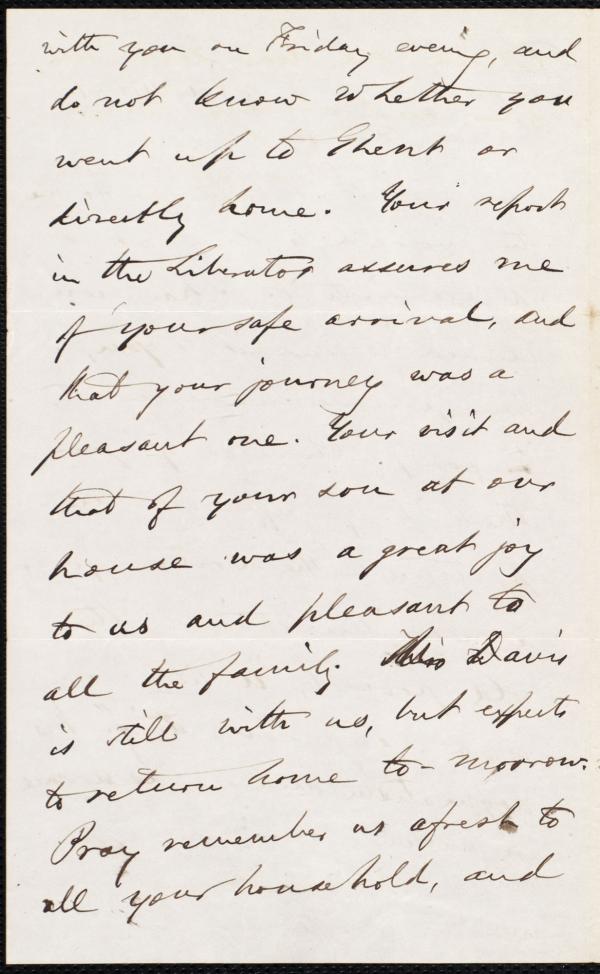 with you on Friday evening, and
do not know whether you
went up to Ghent or
directly home. Your report
in the Liberator assures me
of your safe arrival, and
that your journey was a
pleasant one. Your visit and
that of your son at our
house was a great joy
to us and pleasant to
all the family. Davis
is still with us, but expects
to return home to-morrow.
Pray remember us afresh to
all your household, and